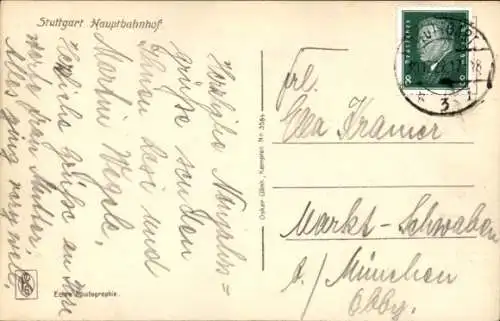 Stuttgart Hauptbahnhof
Herzliche Neujahrs=
grüße senden
Ihnen Resi und
Martin Wegele,
Herzliche Grüße an Ihre
werte Frau Mutter.
Alles ganz
Oskar Günn, Kempten Nr. 3584
Echte Photographie.
8
3
Frl.
Ella Kramer
Markt-Schwaben
b/ München
Obby.